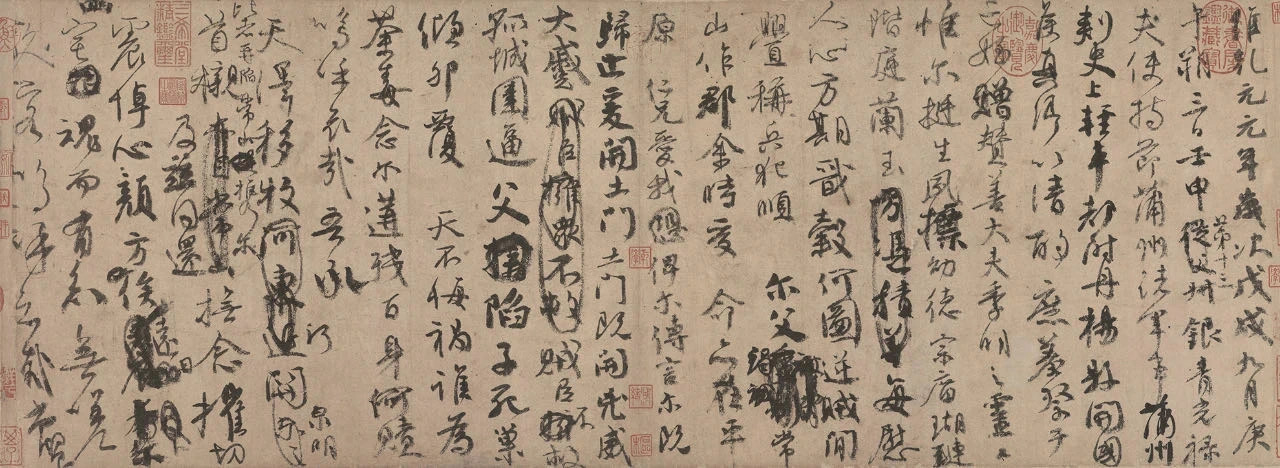 維乾元元年歲次戊戌九月庚
午朔三日壬申第十三從父叔銀青光祿
夫使持節蒲州諸軍事蒲州
刺史上輕車都尉丹楊縣開國
侯真卿以清酌庶羞祭于
亡姪贈贊善大夫季明之靈
惟爾挺生夙標幼德宗廟瑚璉
階庭蘭玉方憑積善每慰
人心方期戩穀何圖逆賊間
釁稱兵犯順 爾父竭誠常
山作郡余時受 命亦在平
原 仁兄愛我恐俾爾傳言爾既
歸止爰開土門土門既開凶威
大蹙賊臣擁眾不救賊臣不救
孤城圍逼父陷子死巢
傾卵覆 天不悔禍誰為
荼毒念爾遘殘百身何贖
嗚呼哀哉 吾承
天澤移牧河東近河關 泉明
比者再陷常山攜爾
首櫬亦自常山 撫念摧切
及茲同還
震悼心顏方俟遠日
宅 魂而有知無嗟
久客嗚呼哀哉尚饗